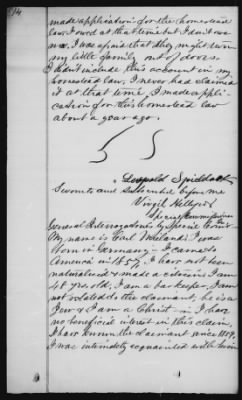 14
made application for the homestead
law. I owed at that time but I don't owe
now. I was afraid that they might turn
my little family out of doors.
I didn't include this account in my
homestead law, I never had claimed
it at that time I made appli-
cation for this homestead law
about a year ago.
Leopold
Sworn to and subscribed before me
Virgil Hillyer
Special Commissioner
General Interrogatories by Special Com'r
My name is Carl I was
born in Germany - I came to
America in 1857, I have not been
naturalized & made a citizen I am
48 yrs old, I am a bar keeper. I am
not related to the claimant, he is a
Jew & I am a Christ - I have
no beneficial interest in this claim,
I have known the claimant since 1859.
I was intimately acquainted with him